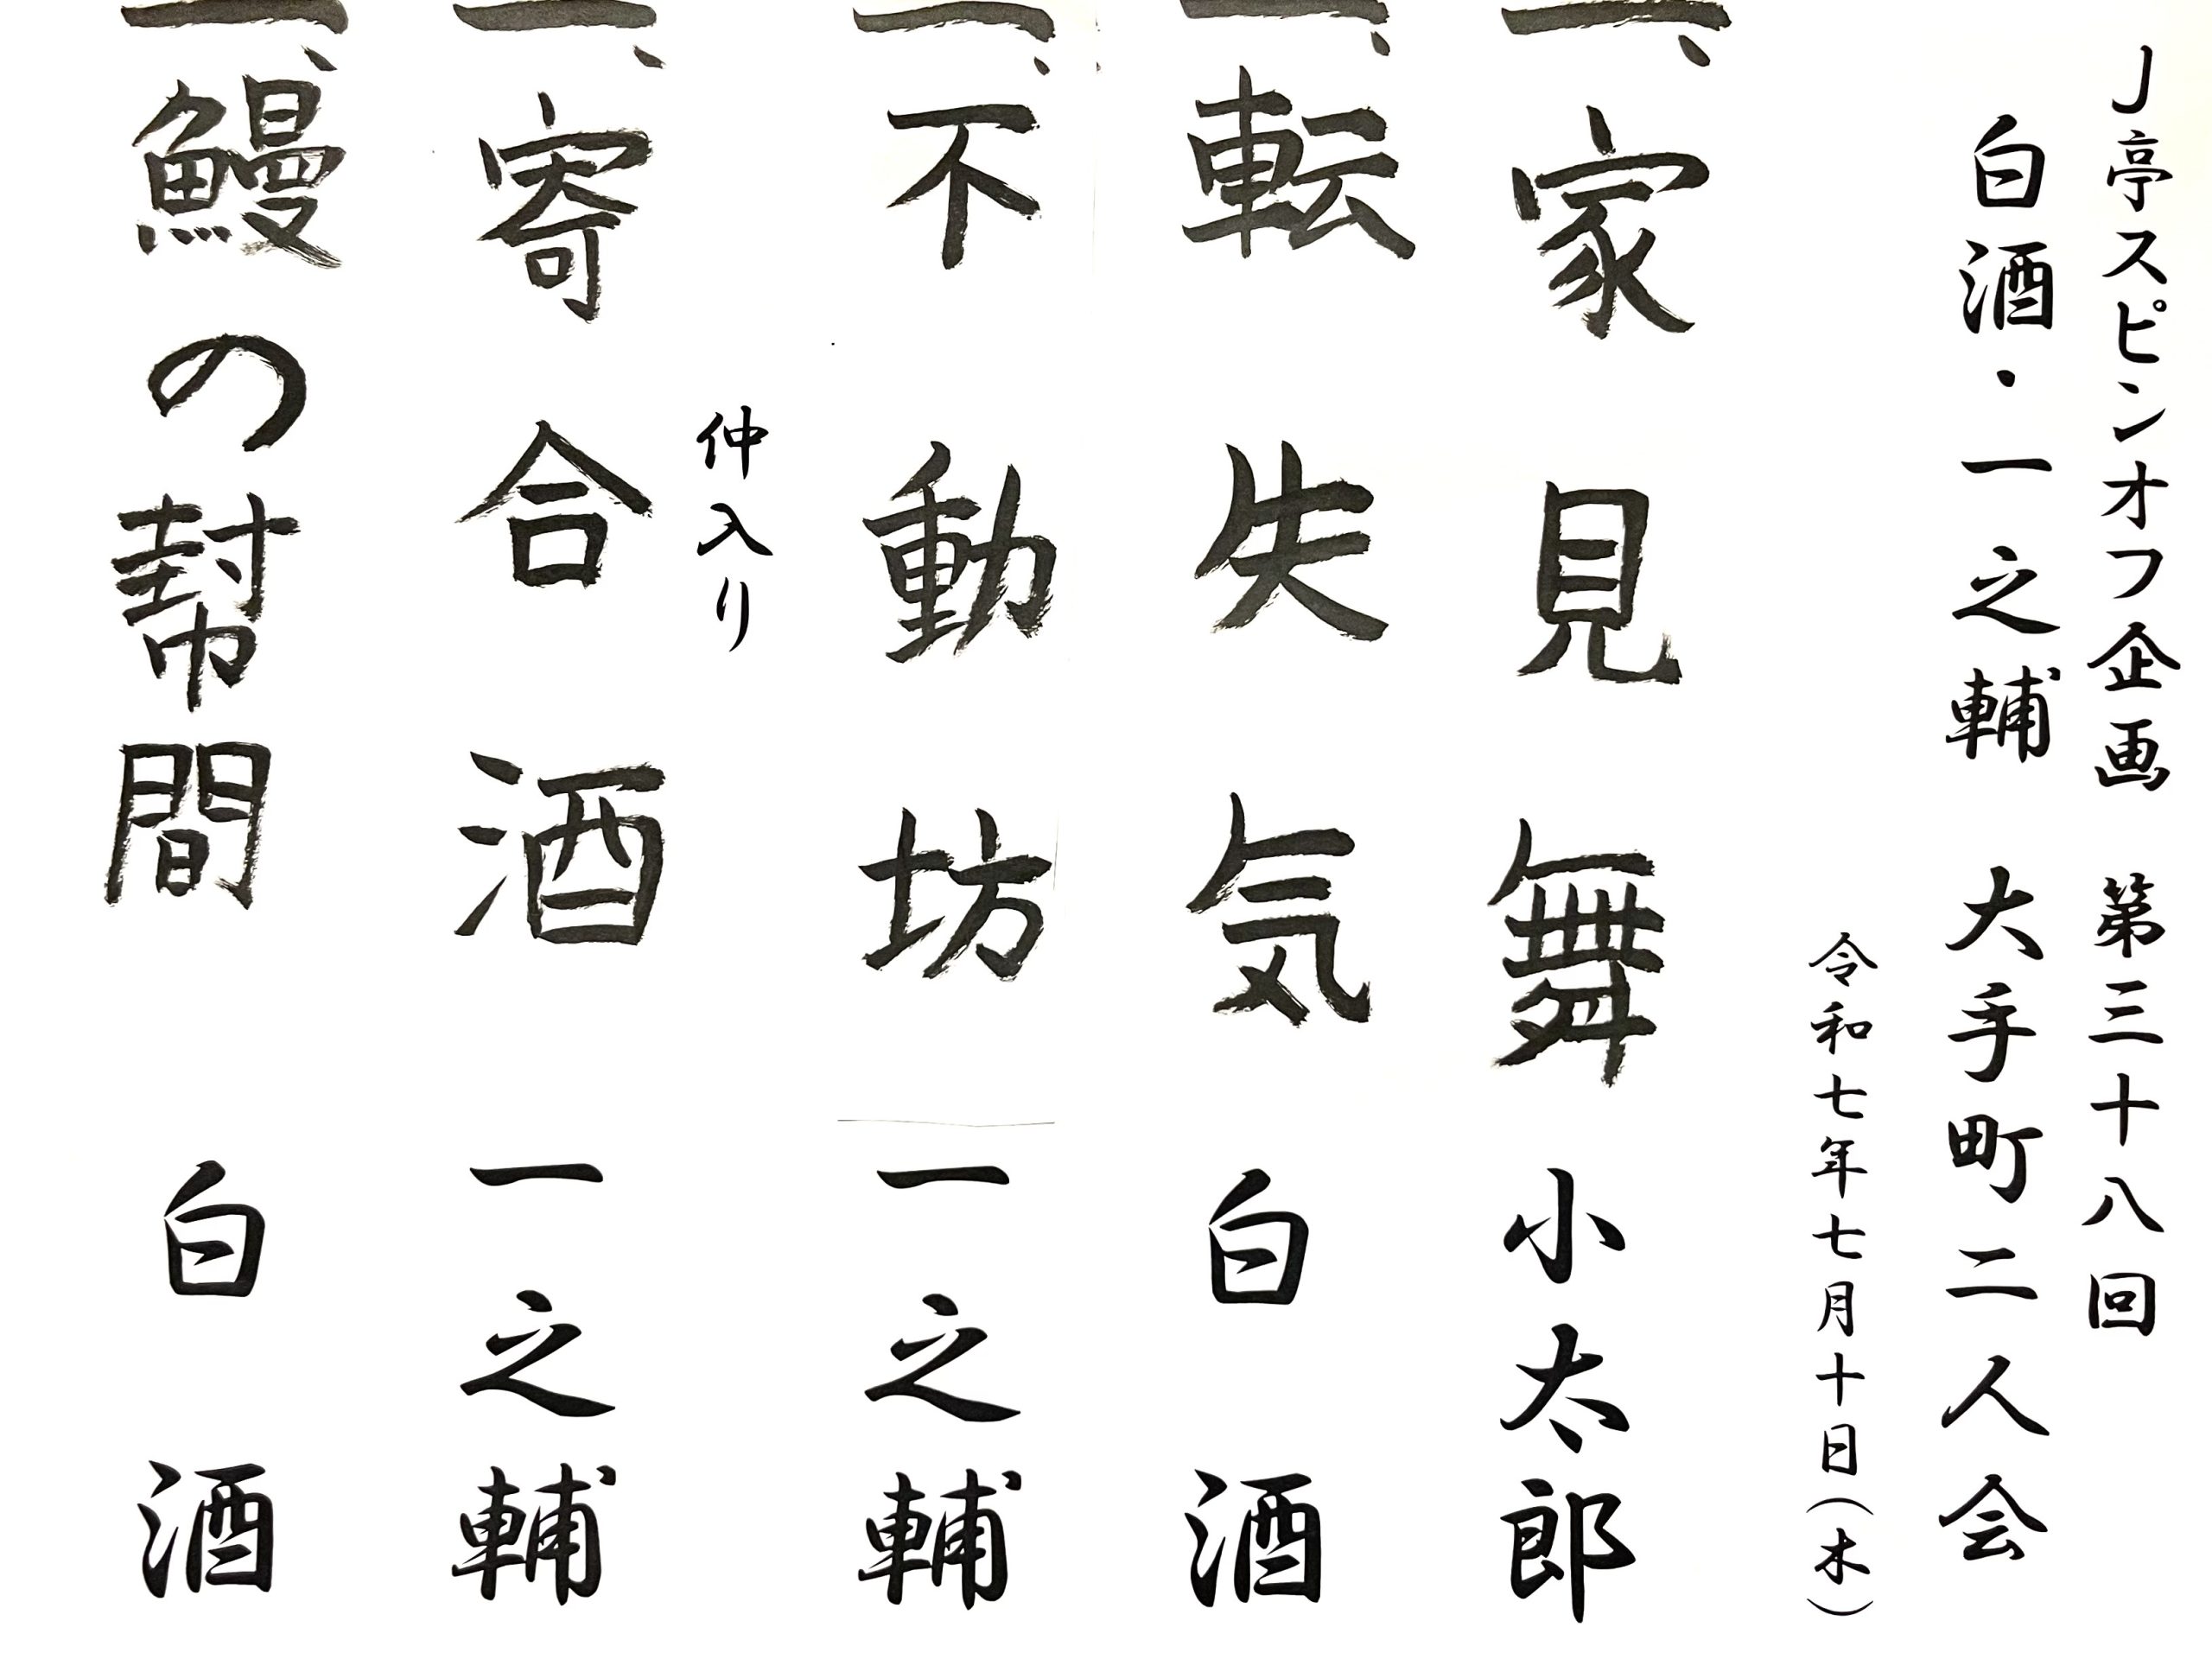 J亭スピンオフ企画　第三十八回
白酒・一之輔　大手町二人会
令和七年七月十日（木）
一、家見舞　小太郎
一、転失気　白酒
一、不動坊　一之輔
仲入り
一、寄合酒　一之輔
一、鰻の幇間　白酒